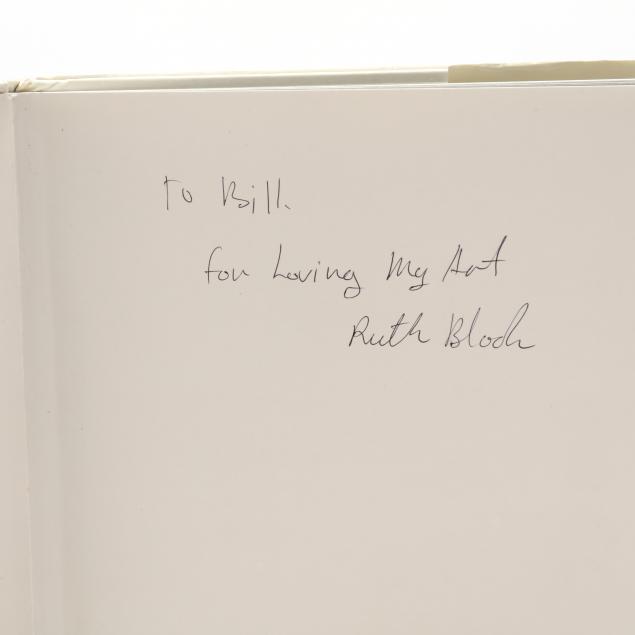 To Bill.
for Loving My Art
Ruth Bloch